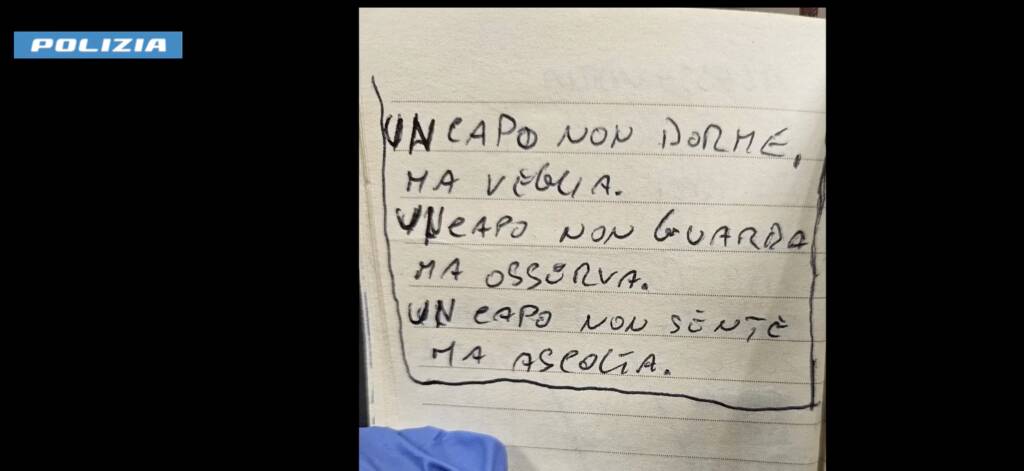 POLIZIA
UN CAPO NON DORME,
MA VEGLIA.
UN CAPO NON GUARDA
MA OSSERVA.
UN CAPO NON SENTE
MA ASCOLTA.